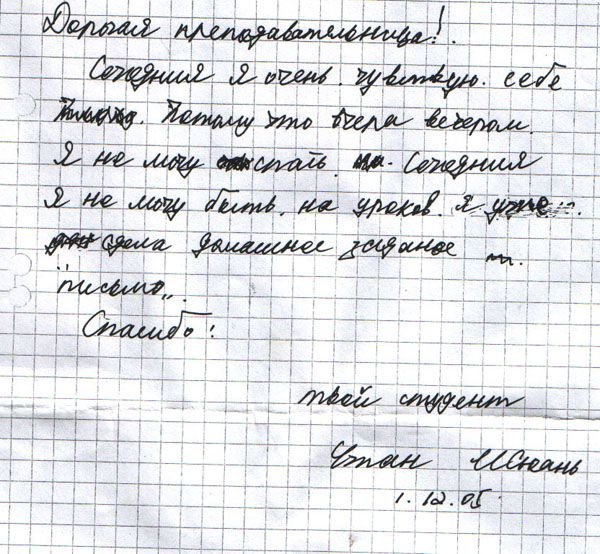 Дорогая преподавательница!.
Сочедния я очень. чувствую. себе
Потому что вчера вечером.
Я не могу спать. Сочедния
Я не могу быть. на уроков. Я уже
сдела домашнее заданое
"письмо„.
Спасибо!
твой студент
Чжан Исюань
1.12.05